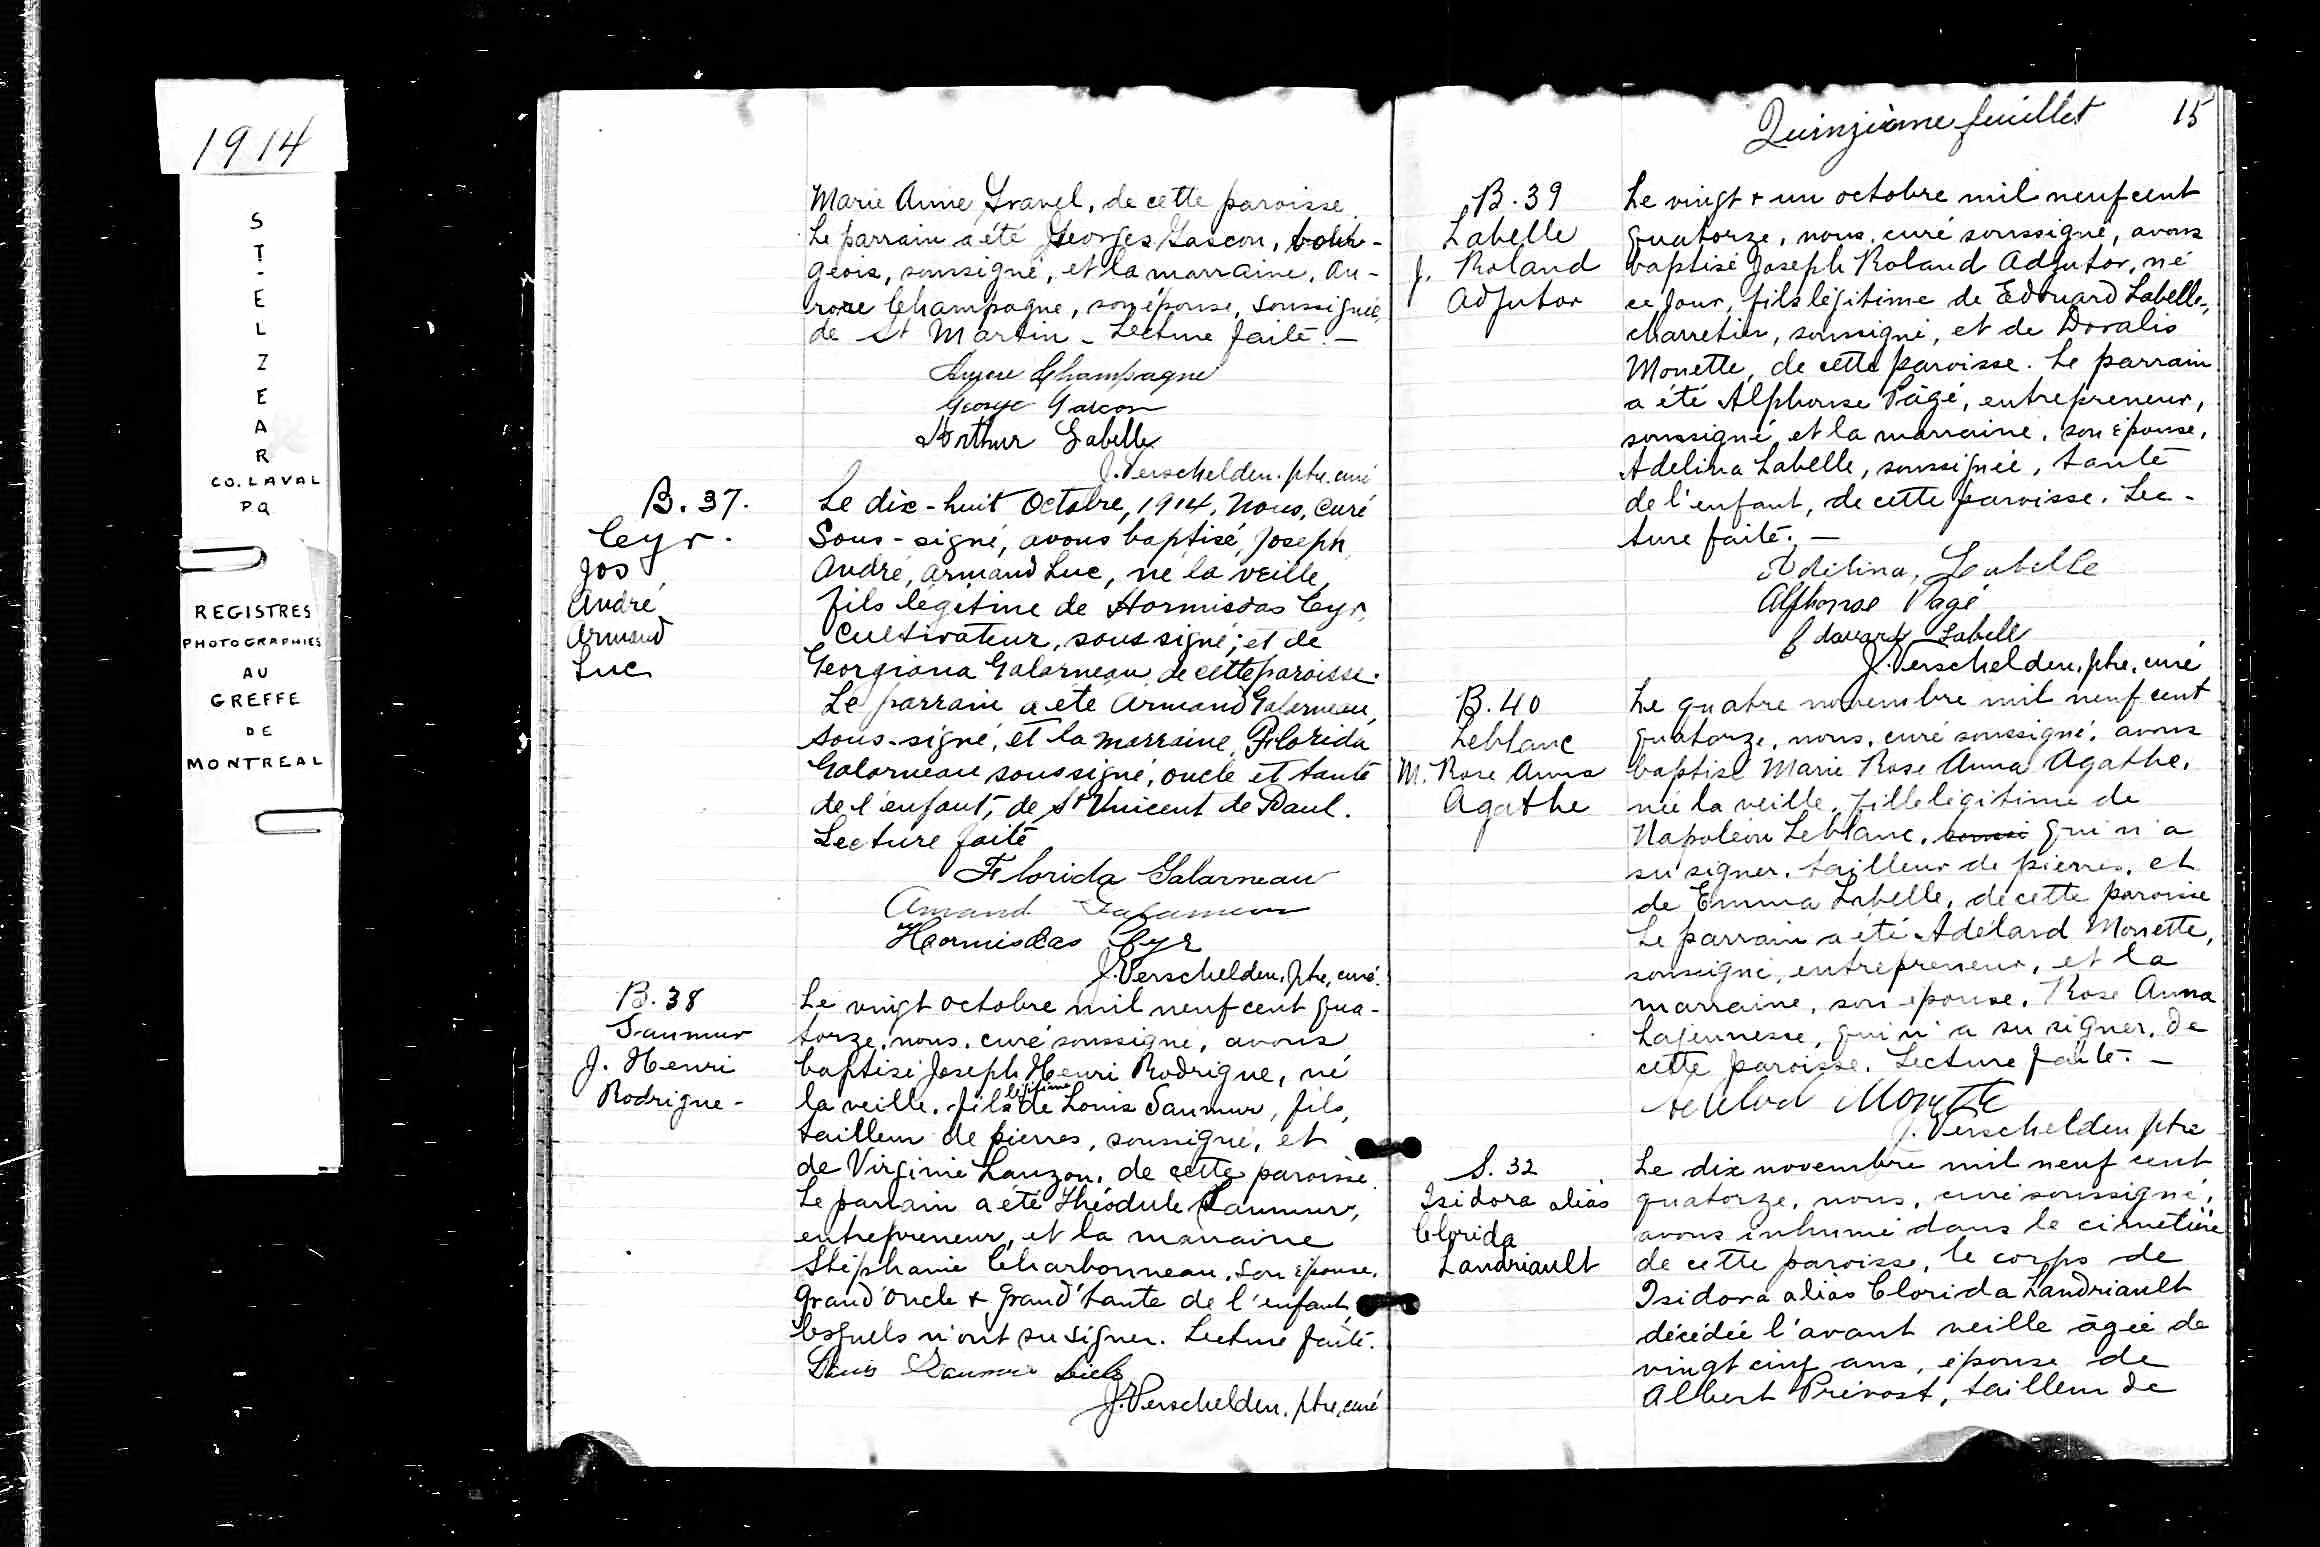 1914
ST-ELZEAR
CO. LAVAL
P Q
REGISTRES
PHOTOGRAPHIES
AU
GREFFE
DE
MONTREAL
Marie Anne Gravel, de cette paroisse.
Le parrain a été Georges Gascon, bour-
geois, soussigné, et la marraine, Au-
rore Champagne, son épouse, soussignée,
de St Martin - Lecture faite. -
Champagne
George Gascon
Arthur Labelle
J. Verschelden. ptre. curé
B. 37.
Cyr.
Jos
André
Armand
Luc
Le dix-huit Octobre, 1914, Nous, Curé
Sous-signé, avons baptisé, Joseph
André, Armand Luc, né la veille,
fils légitine de Hormisdas Cyr,
Cultivateur, sous signé; et de
Georgiana Galarneau, de cette paroisse.
Le parrain a été Armand Galarneau,
sous-signé, et la marraine, Florida
Galarneau soussigné, oncle et tante
de l'enfant, de St Vincent de Paul.
Lecture faite
Florida Galarneau
Armand Galarneau
Hormisdas Cyr
J. Verschelden, ptre, curé.
B. 38
Saumur
J. Henri
Rodrigue -
Le vingt octobre mil neuf cent qua-
torze, nous, curé soussigné, avons
baptisé Joseph Henri Rodrigue, né
la veille, fils légitime de Louis Saumur, fils,
tailleur de pierres, soussigné, et
de Virginie Lauzon, de cette paroisse.
Le parrain a été Théodule Saumur,
entrepreneur, et la marraine
Stéphanie Charbonneau, son épouse,
grand'oncle & grand'tante de l'enfant,
lesquels n'ont su signer. Lecture faite.
Louis Saumur
J. Verschelden, ptre, curé
Quinzième feuillet 15
B. 39
Labelle
J. Roland
Adjutor
Le vingt & un octobre mil neuf cent
quatorze, nous, curé soussigné, avons
baptisé Joseph Roland Adjutor, né
ce jour, fils légitime de Edouard Labelle,
charretier, soussigné, et de Doralis
Monette, de cette paroisse. Le parrain
a été Alphonse Pagé, entrepreneur,
soussigné, et la marraine, son épouse,
Adelina Labelle, soussignée, tante
de l'enfant, de cette paroisse. Lec-
ture faite. -
Adelina, Labelle
Alphonse Pagé
Edouard Labell
J. Verschelden, ptre, curé
B. 40
Leblanc
M. Rose Anna
Agathe
Le quatre novembre mil neuf cent
quatorze, nous, curé soussigné, avons
baptisé Marie Rose Anna Agathe,
née la veille, fille légitime de
Napoléon Leblanc, soussi qui n'a
su signer, tailleur de pierres, et
de Emma Labelle, de cette paroisse
Le parrain a été Adélard Monette,
soussigné, entrepreneur, et la
marraine, son épouse, Rose Anna
Lajeunesse, qui n'a su signer, de
cette paroisse. Lecture faite. -
Adelard Monette
J. Verschelden ptre
S. 32
Isidora alias
Clorida
Landriault
Le dix novembre mil neuf cent
quatorze, nous, curé soussigné,
avons inhumé dans le cimetière
de cette paroisse, le corps de
Isidora alias Clorida Landriault
décédée l'avant veille âgée de
vingt cinq ans, épouse de
Albert Prévost, tailleur de